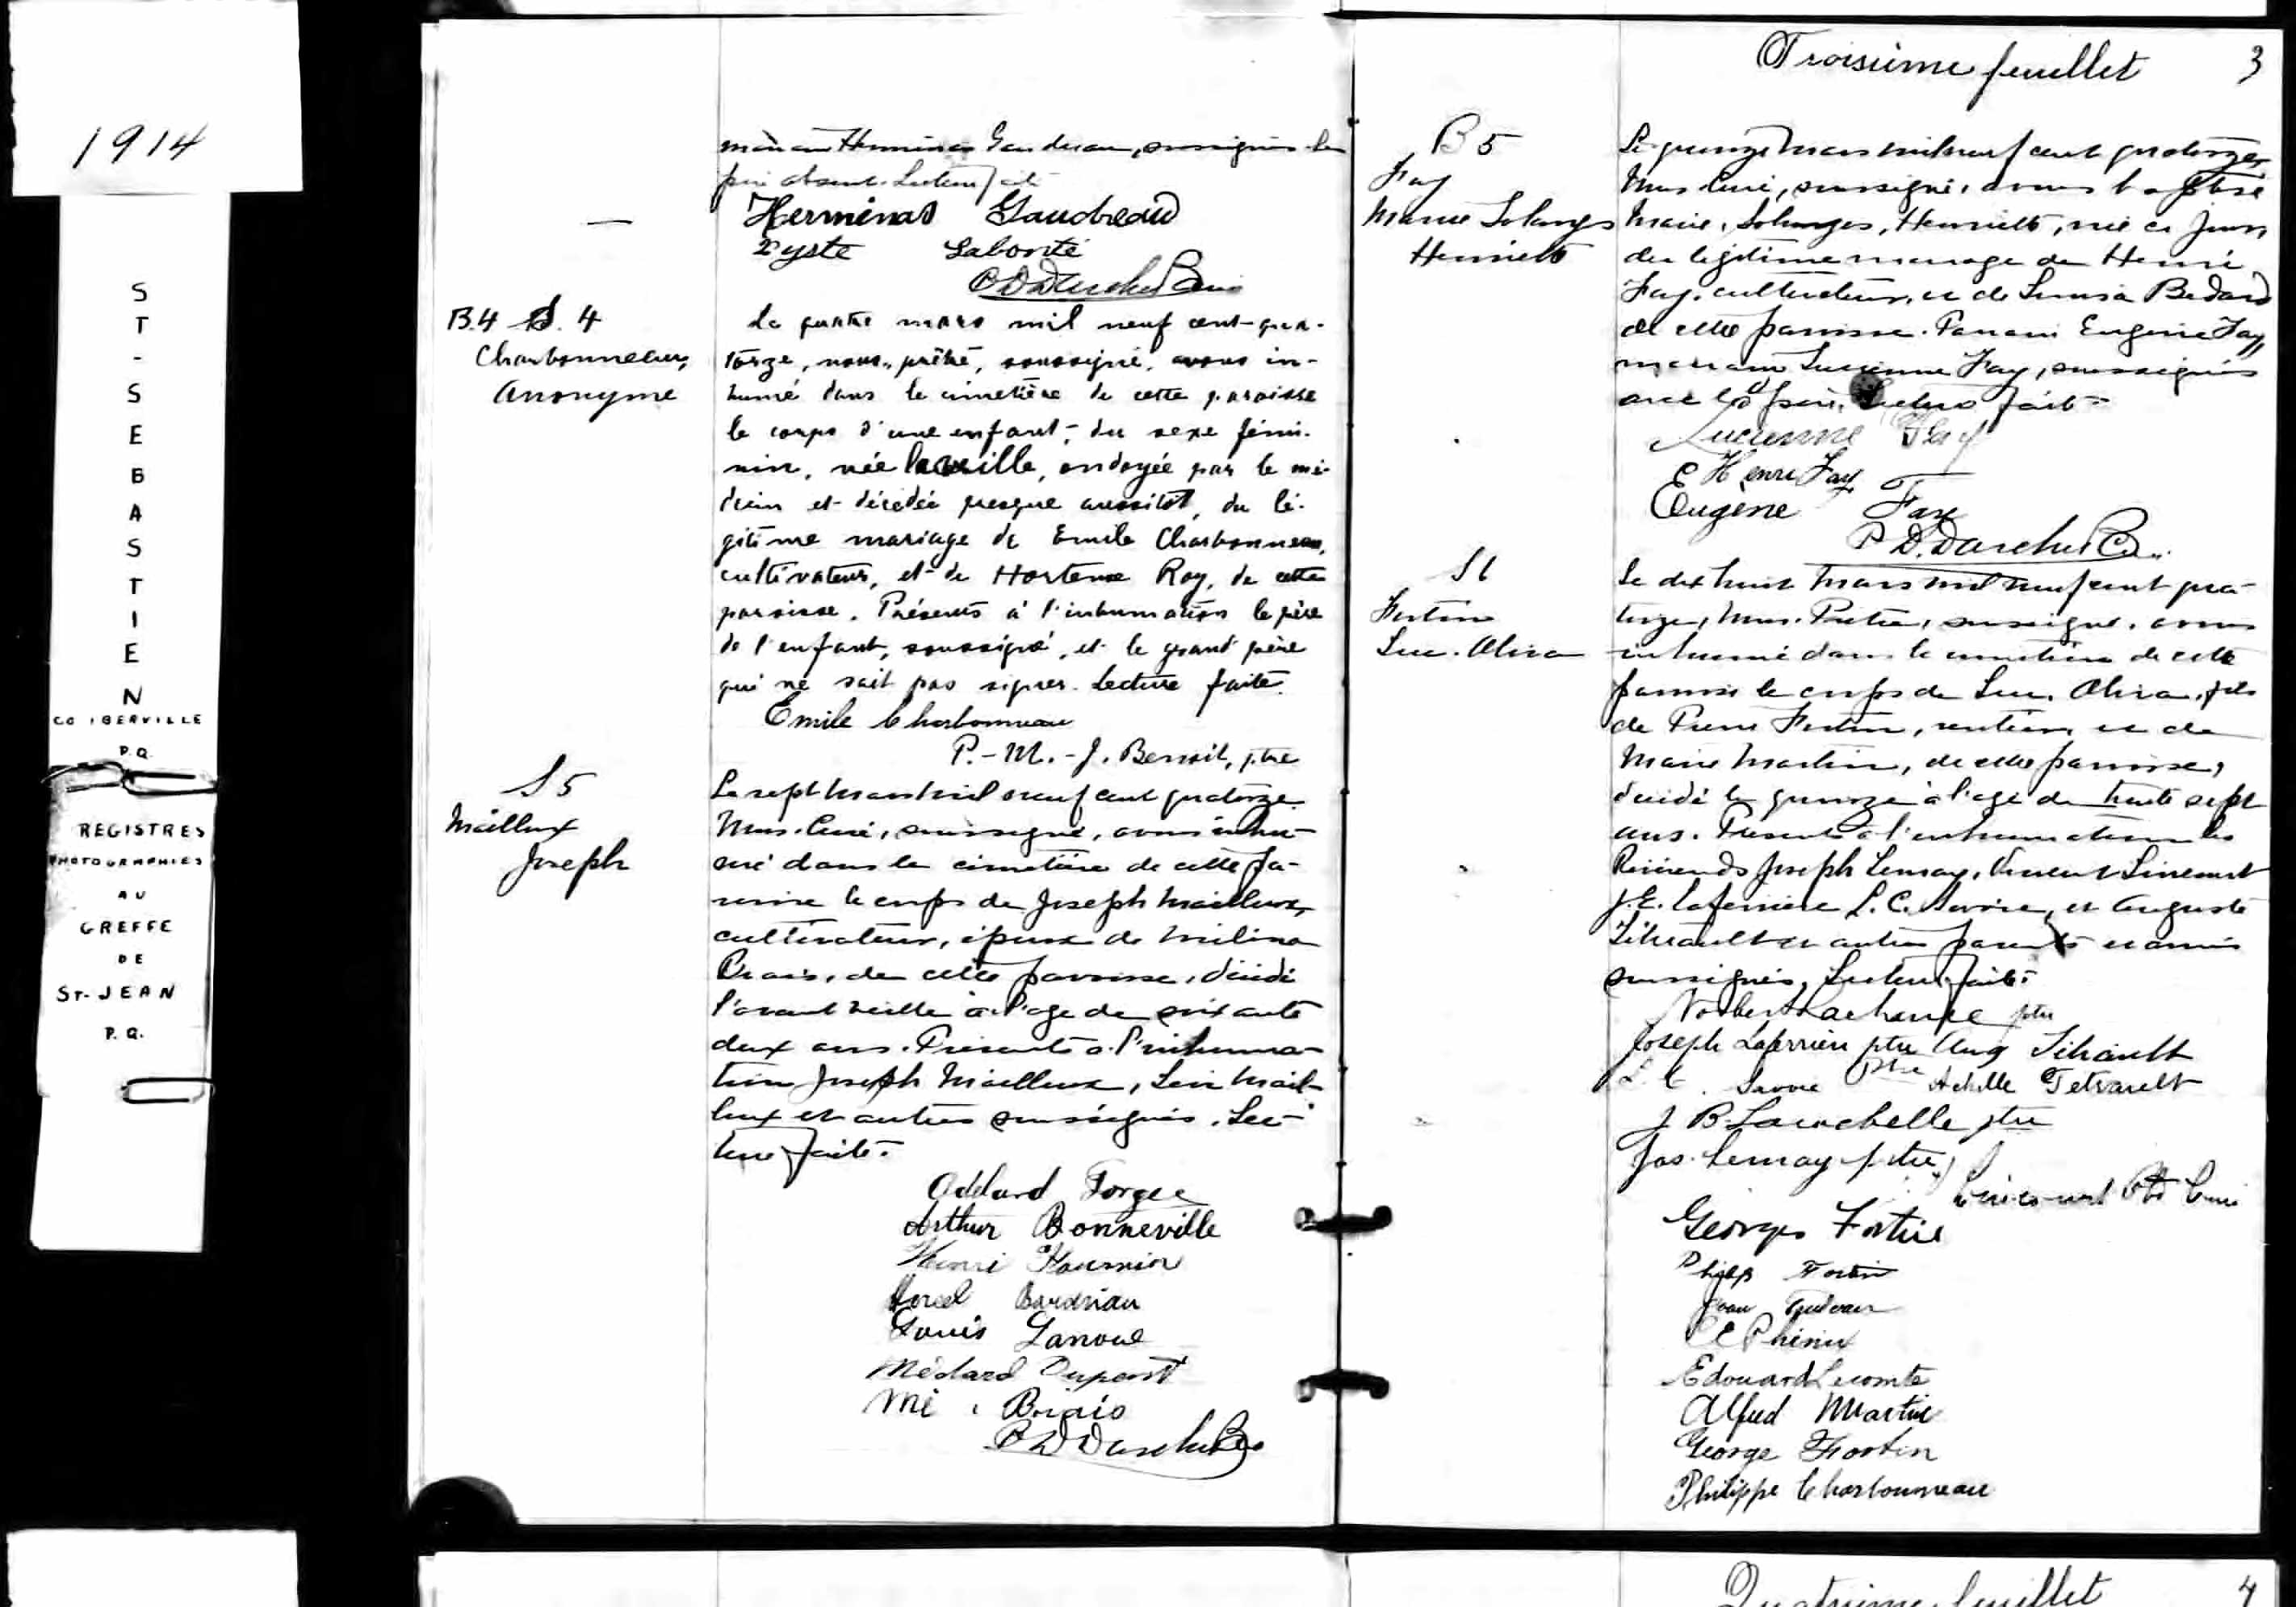 1914
ST-SEBASTIEN
CO IBERVILLE
P.Q.
REGISTRES
PHOTOGRAPHIES
AU
GREFFE
DE
ST-JEAN
P.Q.
père absent. Lecture faite
Herménas Gaudreau
Xyste Laborité
B.4 S. 4
Charbonneau,
Anonyme
Le quatre mars mil neuf cent-qua-
torze, nous, prêtre, soussigné, avons in-
humé dans le cimetière de cette paroisse
le corps d'une enfant, du sexe fémi-
nin, née la veille, ondoyée par le mé-
decin et décédée presque aussitôt, du lé-
gitime mariage de Emile Charbonneau,
cultivateur, et de Hortense Roy, de cette
paroisse. Présents à l'inhumation le père
de l'enfant, soussigné, et le grand père
qui ne sait pas signer. Lecture faite.
Emile Charbonneau
P.-M.-J. Benoit, ptre
S5
Mailloux
Joseph
Le sept mars mil neuf cent quatorze
Nous, Curé, soussigné, avons inhu-
mé dans le cimetière de cette pa-
roisse le corps de Joseph Mailloux,
cultivateur, époux de Mélina
Briais, de cette paroisse, décédé
l'avant veille à l'age de soixante
deux ans. Présents à l'inhuma-
tion Joseph Mailloux, Mail-
loux et autres soussignés. Lec-
ture faite.
Adélard Forget
Arthur Bonneville
Henri Fournier
Louis Lanoue
Médard Dupont
Briais
Troisième feuillet 3
B 5
Fay
Marie Solanges
Henriette
Le quinze mars mil neuf cent quatorze
Nous Curé, soussigné, avons baptisé
Marie, Solanges, Henriette, née ce jour
du légitime mariage de Henri
Fay, cultivateur, et de Bedard
de cette paroisse. Parrain Eugène Fay,
marraine Lucienne Fay, soussignés
avec le père. Lecture faite
Lucienne Fay
E Henri Fay
Eugène Fay
S6
Fortin
Luc. Oliva
Le dix huit mars mil neuf cent qua-
torze, Nous, Prêtre, soussigné, avons
inhumé dans le cimetière de cette
paroisse le corps de Luc, Oliva, fils
de Pierre Fortin, rentier, et de
Marie Martin, de cette paroisse,
décédé le quinze à l'age de trente sept
ans. Présents à l'inhumation les
Révérends Joseph Lemay, Vincent
J.E. Laferrière L.C. Savoie, et Auguste
Tétreault et autres parents et amis
soussignés, Lecture faite.
Norbert ptre
Joseph Laferrière ptre Aug Tétreault
L. C. Savoie Ptre Achille Tetrault
J B. Larochelle ptre
Jos. Lemay ptre
Georges Fortin
Philip Fortin
Edouard Lecomte
Alfred Martin
George Fortin
Philippe Charbonneau
Quatrième feuillet 4